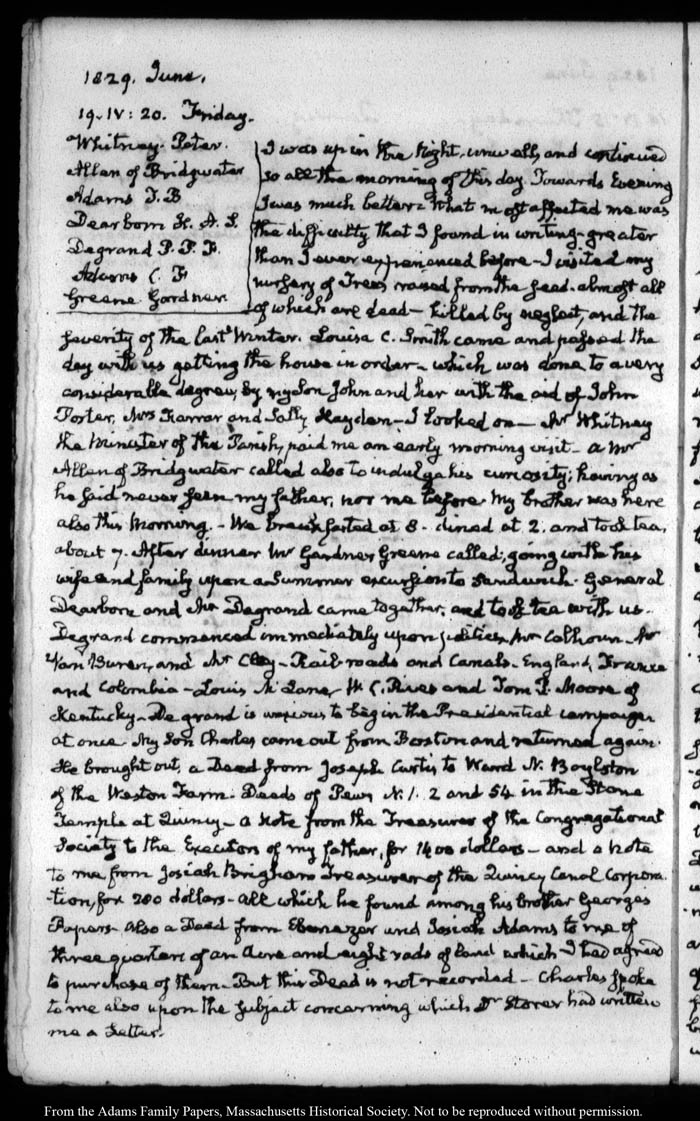 1829. June.
19. IV: 20. Friday.
Whitney. Peter.
Allen of Bridgwater
Adams T. B
Dearborn H. A. S.
Degrand P. P. F.
Adams C. F
Greene Gardner
I was up in the Night, unwell, and continued
so all the morning of this day. Towards Evening
I was much better. What most affected me was
the difficulty that I found in writing—greater
than I ever experienced before—I visited my
nursery of Trees raised from the seed. almost all
of which are dead—killed by neglect, and the
severity of the last Winter. Louisa C. Smith came and passed the
day with us getting the house in order—which was done to a very
considerable degree, by my Son John and her with the aid of John
Foster, Mrs Farrar and Sally Hayden—I looked on—Mr Whitney
the Minister of the Parish, paid me an early morning visit—a Mr
Allen of Bridgwater called also to indulge his curiosity; having as
he said never seen my father, nor me before. My brother was here
also this Morning.—We breakfasted at 8—dined at 2. and took tea,
about 7. After dinner Mr Gardner Greene called; going with his
wife and family upon a Summer excursion to Sandwich. General
Dearborn and Mr Degrand came together, and took tea with us.
Degrand commenced immediately upon politics, Mr Calhoun. Mr
Van Buren, and Mr Clay—Rail roads and Canals—England, France
and Colombia—Louis McLane, W. C. Rives and Tom P. Moore of
Kentucky—Degrand is anxious to begin the Presidential campaign
at once. My Son Charles came out from Boston and returned again.
He brought out, a Deed from Joseph Curtis to Ward N. Boylston
of the Weston Farm. Deeds of Pews N. 1. 2 and 54 in the Stone
Temple at Quincy—a Note from the Treasurer of the Congregational
Society to the Executors of my father, for 1400 dollars—and a note
to me from Josiah Brigham Treasurer of the Quincy Canal Corpora-
-tion, for 200 dollars—all which he found among his brother Georges
Papers—also a Deed from Ebenezer and Josiah Adams to me of
three quarters of an Acre and eight rods of land which I had agreed
to purchase of them. But this Deed is not recorded—Charles spoke
to me also upon the subject concerning which Dr Storer had written
me a Letter.
From the Adams Family Papers, Massachusetts Historical Society. Not to be reproduced without permission.